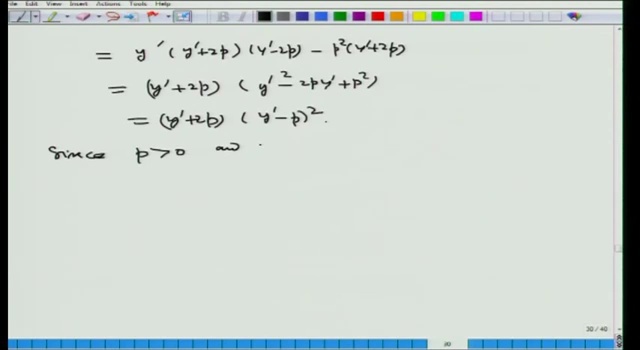 File Edit View Insert Actions Tools Help
= y' (y'+2p) (y'-2p) - p²(y'+2p)
= (y'+2p) (y'² - 2py' + p²)
= (y'+2p) (y'-p)².
Since p>0 and
30 / 40
30